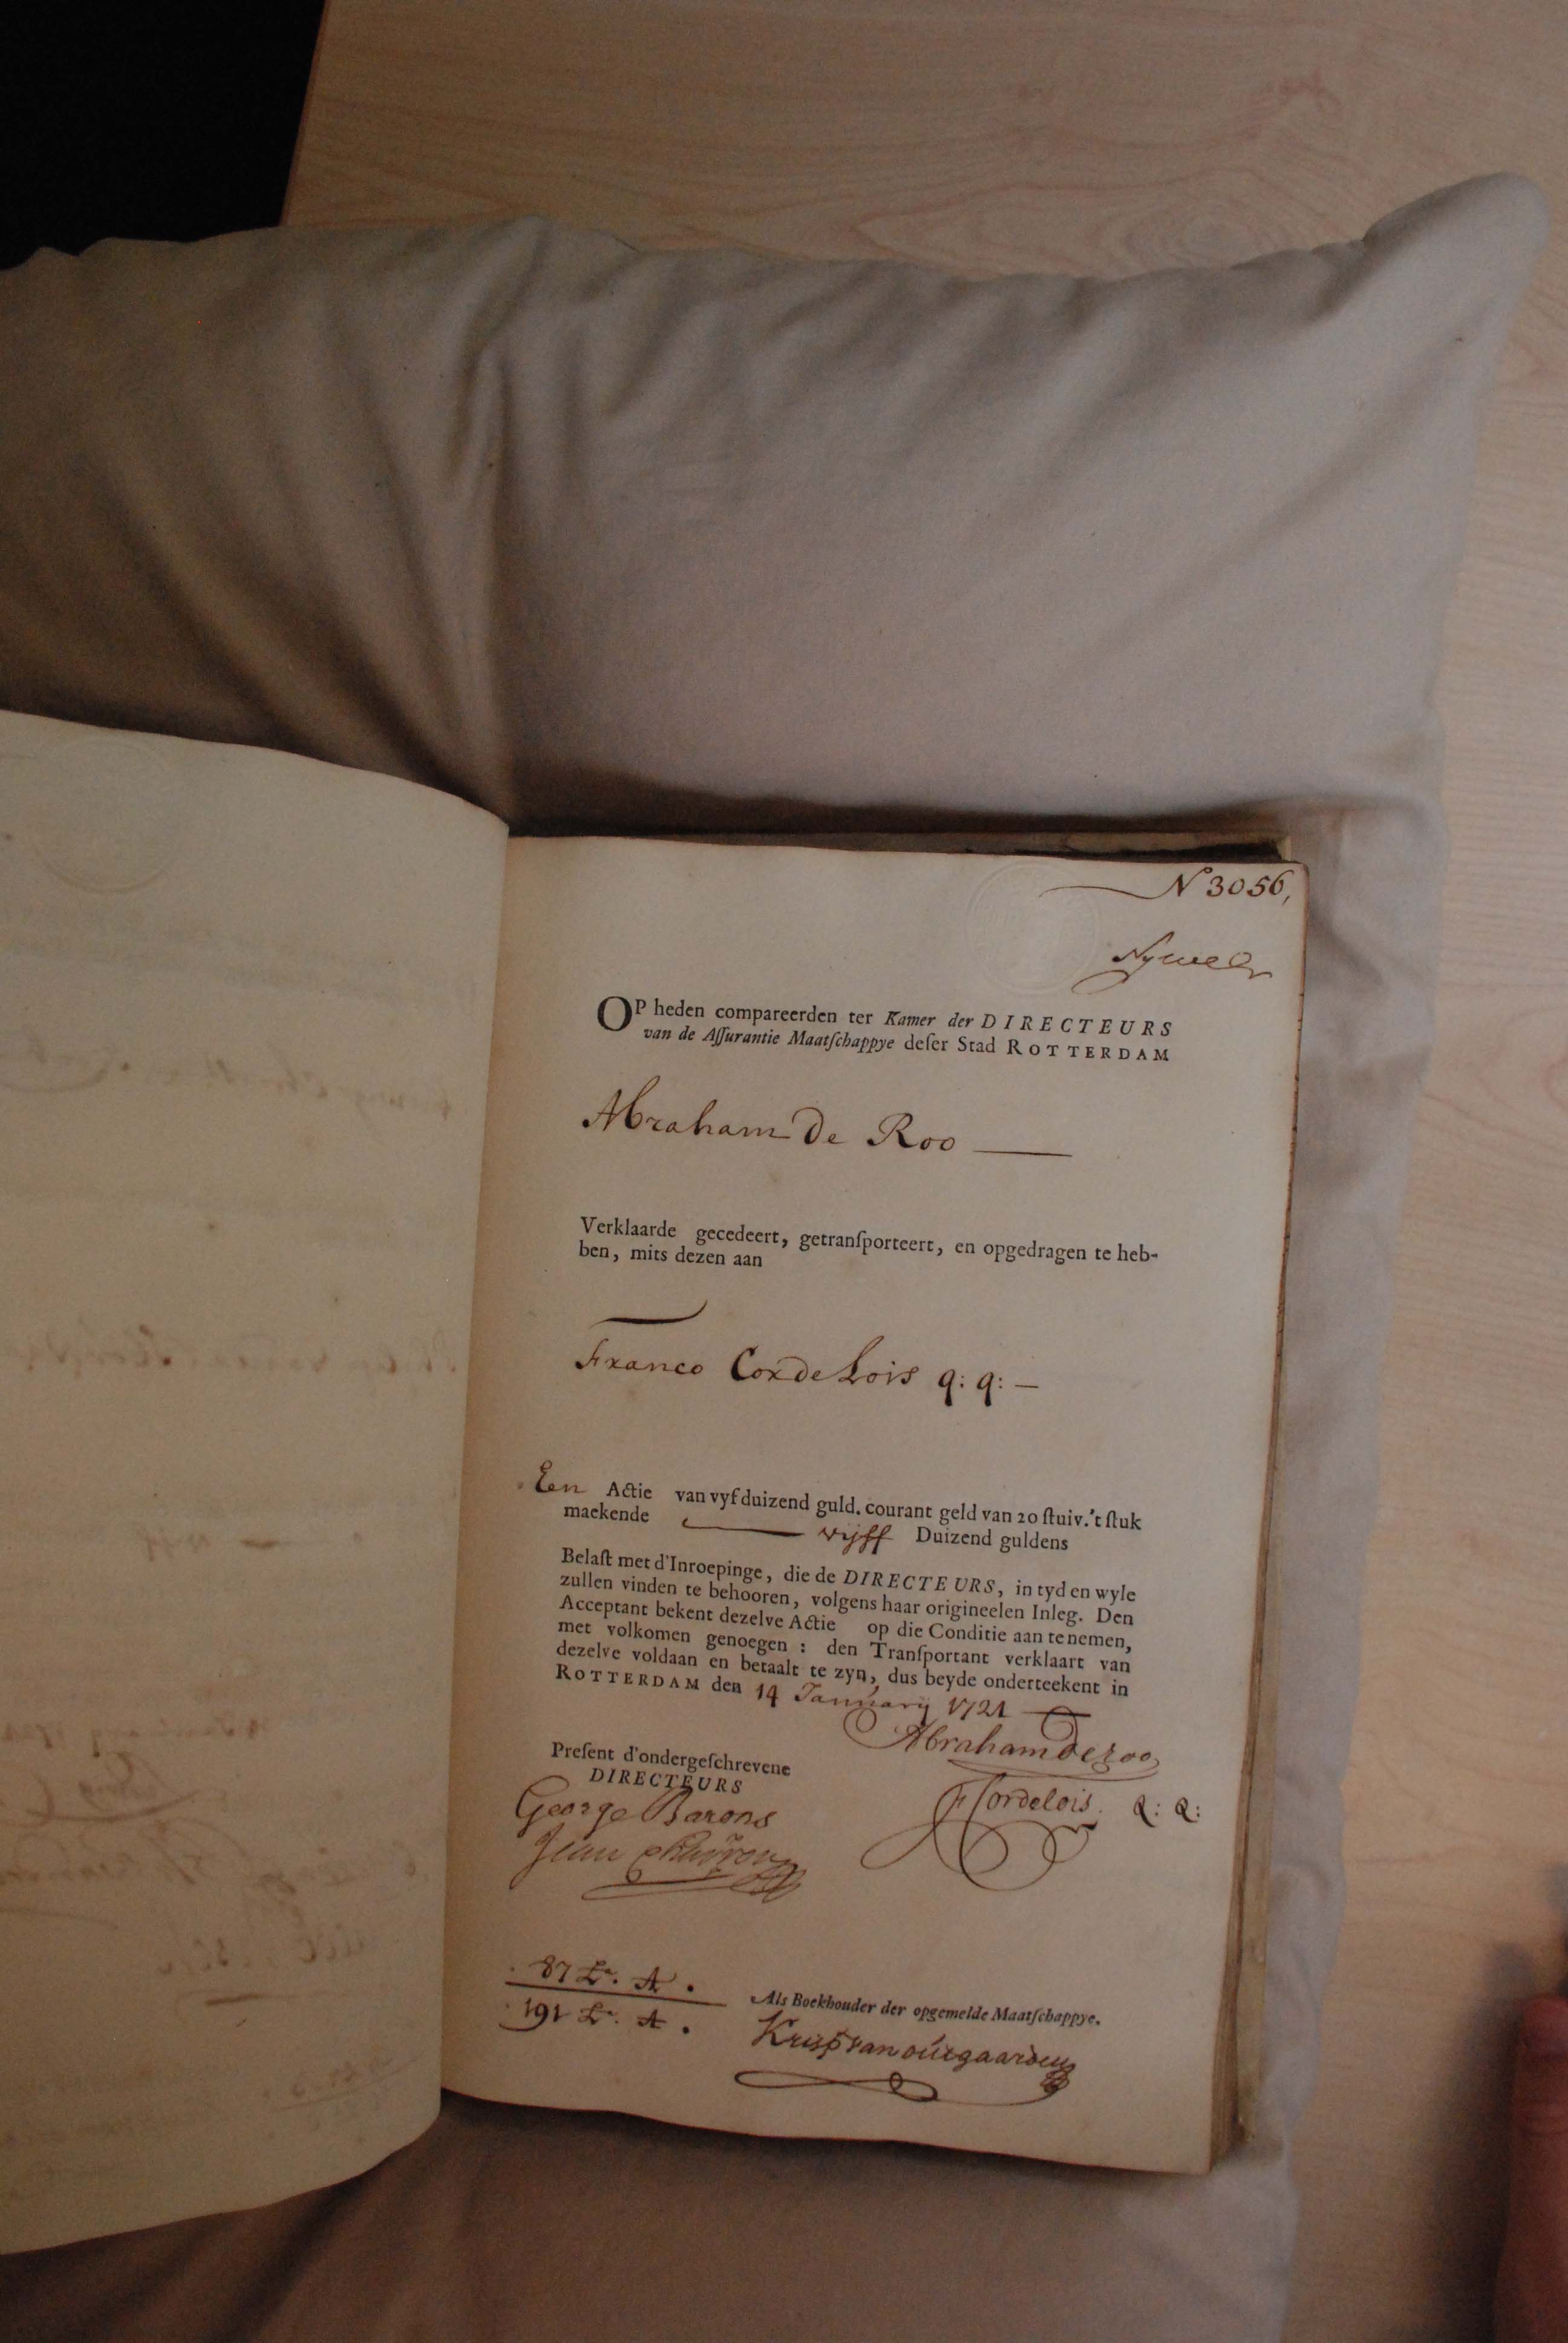 N 3056,
OP heden compareerden ter Kamer der DIRECTEURS
van de Aſſurantie Maatſchappye deſer Stad ROTTERDAM
Abraham De Roo
Verklaarde gecedeert, getranſporteert, en opgedragen te heb-
ben, mits dezen aan
Franco Cordelois q: q: —
Een Actie van vyf duizend guld. courant geld van 20 ſtuiv. 't ſtuk
maekende vijff Duizend guldens
Belaſt met d'Inroepinge, die de DIRECTEURS, in tyd en wyle
zullen vinden te behooren, volgens haar origineelen Inleg. Den
Acceptant bekent dezelve Actie op die Conditie aan te nemen,
met volkomen genoegen : den Tranſportant verklaart van
dezelve voldaan en betaalt te zyn, dus beyde onderteekent in
ROTTERDAM den 14 Januarij 1721
Abraham de roo
Preſent d'ondergeſchrevene
DIRECTEURS
George Barons
F Cordelois. Q: Q:
Jean
87 Lr. A.
191 Lr. A.
Als Boekhouder der opgemelde Maatſchappye.